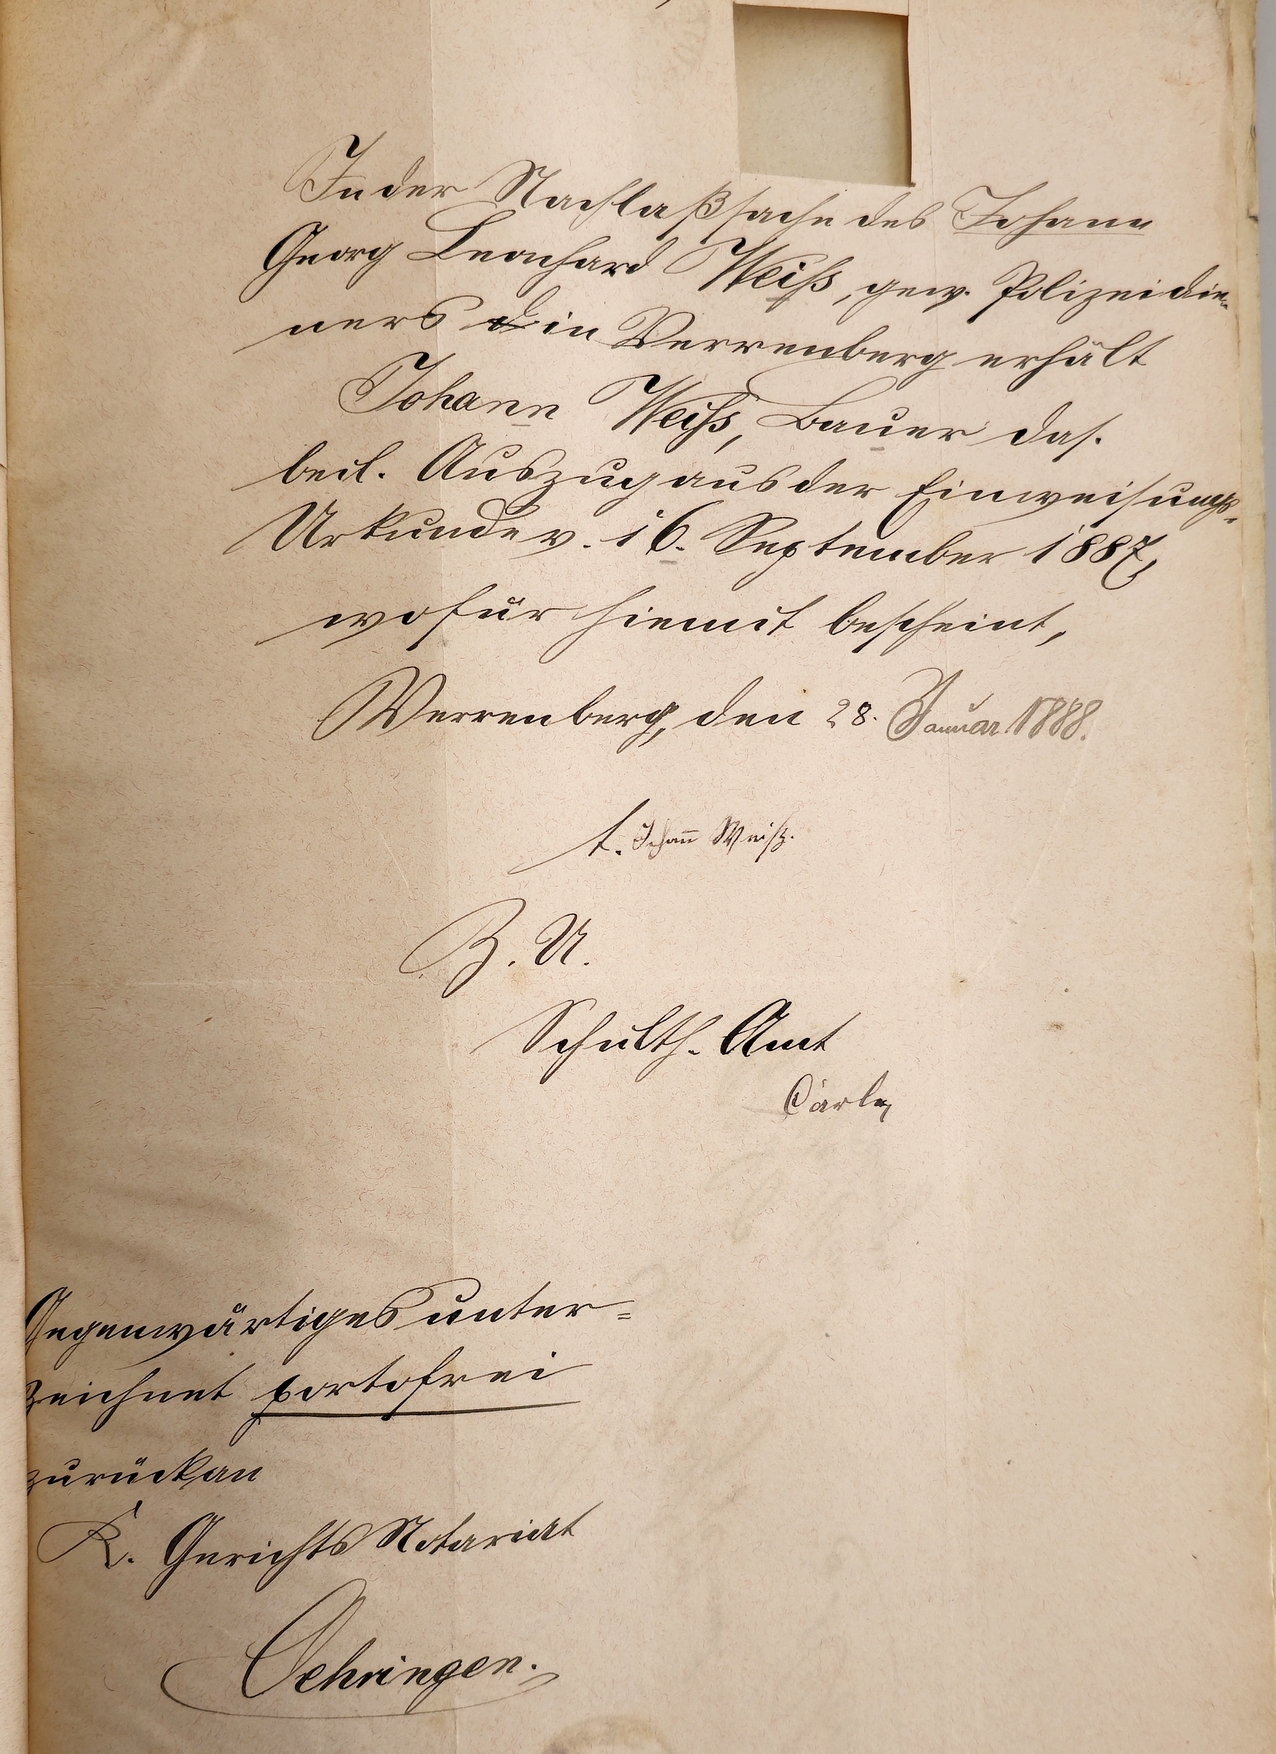 In der Nachlaßsache des Johann
Georg Leonhard Weiß, gew. Polizeidie-
ners in Verrenberg erhält
Johann Weiß, Bauer das.
beil. Auszug aus der Einweisungs-
Urkunde v. 16. September 1887,
wofür hiemit bescheint,
Verrenberg, den 28. Januar 1888.
t. Johann Weiß.
Z. U.
Schulth. Amt
Gegenwärtiges unter=
zeichnet portofrei
zurück an
K. Gerichts Notariat
Oehringen.